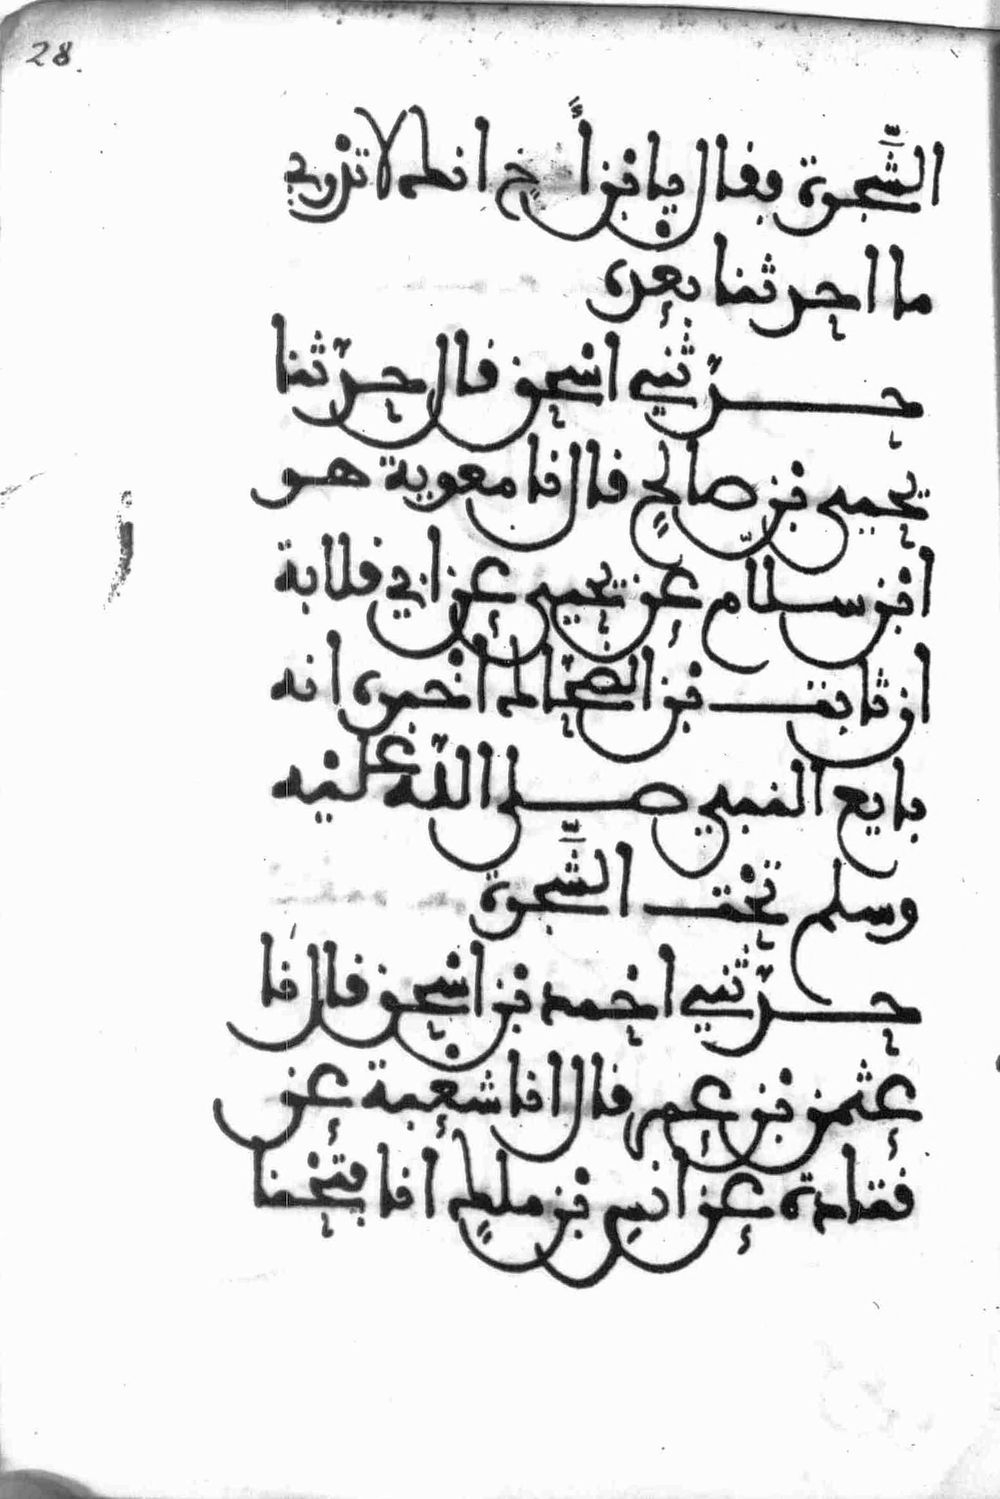 28.
الشَّجرة فقال يا ابن أخٍ انك لا تدرى
ما احدثنا بعده
حدّثنى اسحق قال حدّثنا
يحيى بن صالحٍ قال نا معوية هو
ابن سلّام عن يحيى عن ابى قلابة
ان ثابت بن الضحّاك اخبره انه
بايع النبى صلى اللّه عليه
وسلم تحت الشَّجرة
حدّثنى احمد بن اسحق قال نا
عثمن بن عمر قال انا شعبة عن
قتادة عن انسِ بن ملكٍ انا فتحنا